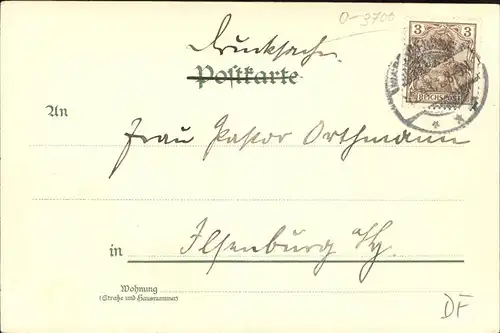 0-3700
Drucksache.
Postkarte
3 3
REICHSPOST
An
Frau Pastor Orthmann
in Ilsenburg a/H.
Wohnung
(Straße und Hausnummer)
DF